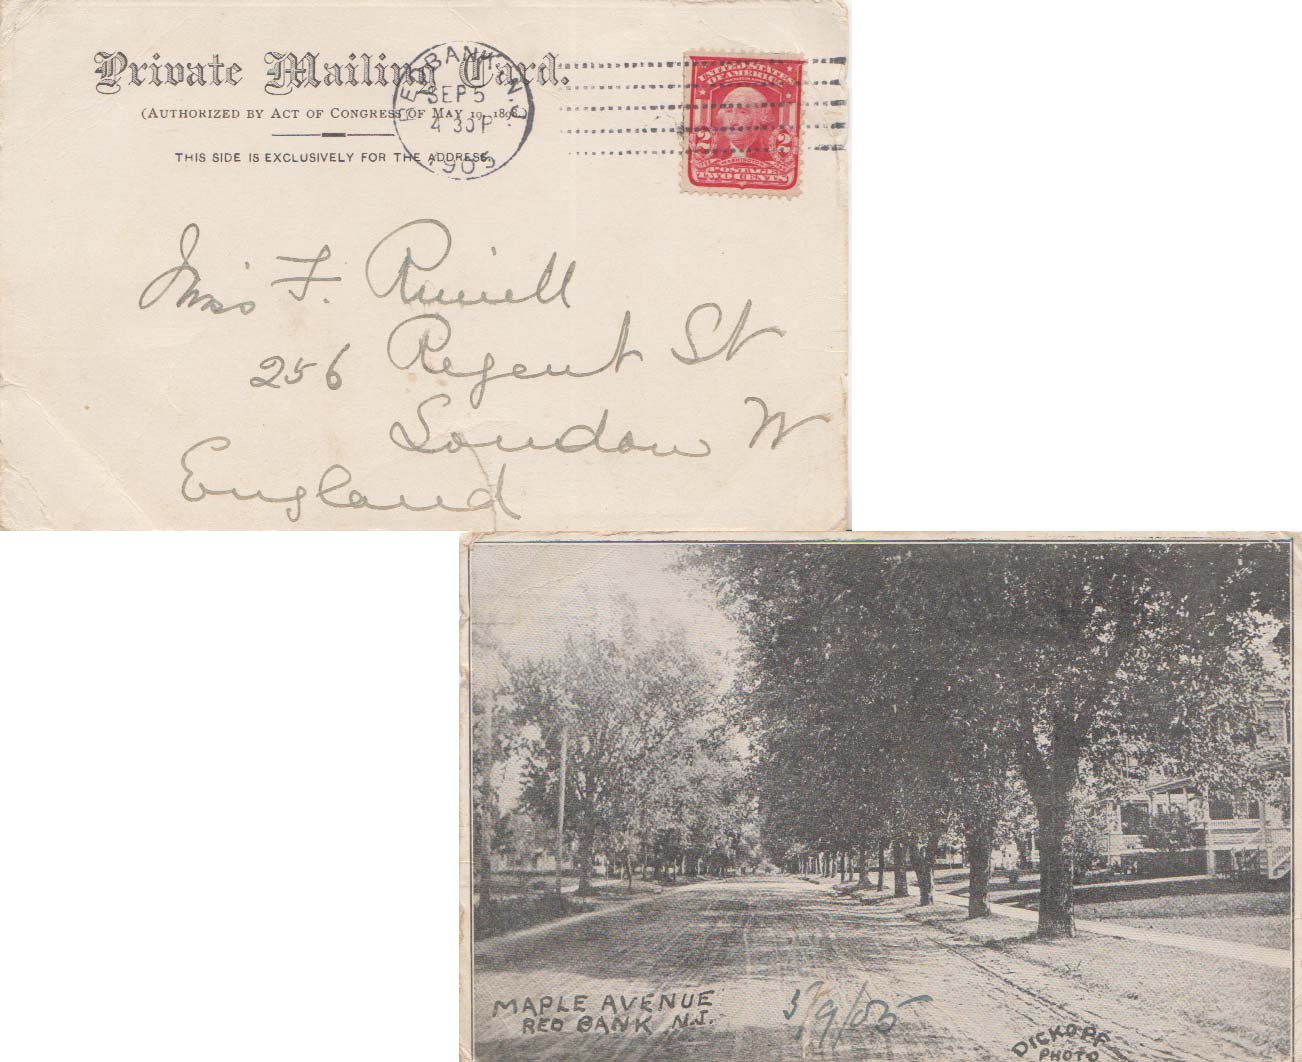 Private Mailing Card.
(AUTHORIZED BY ACT OF CONGRESS OF MAY 19, 1898.)
THIS SIDE IS EXCLUSIVELY FOR THE ADDRESS.
RED BANK, N.J.
SEP 5
4 30 P
1905
UNITED STATES
OF AMERICA
2 2
WASHINGTON
POSTAGE
TWO CENTS
Miss F.
256 Regent St
London W
England
MAPLE AVENUE
RED BANK N.J.
5/9/05
DICKOPF
PHOTO